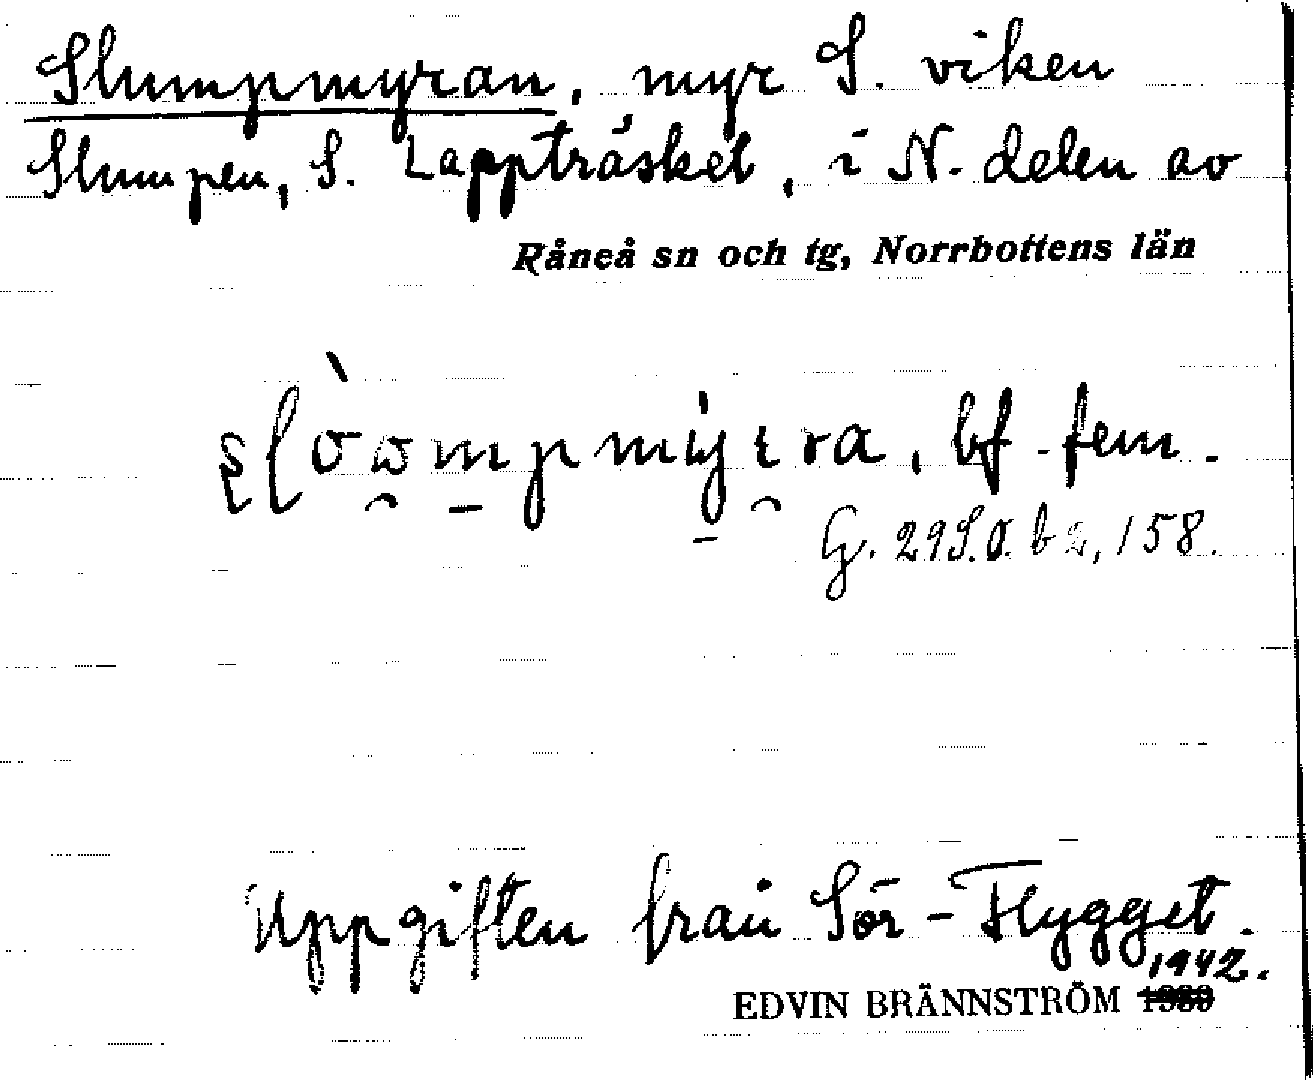 Slumpmyran, myr S. viken
Slumpen, S. Lappträsket, i N. delen av
Råneå sn och tg, Norrbottens län
bf. fem.
G. 29 S.Ö. b 2, 158.
Uppgiften från Sör-Flygget.
1942.
EDVIN BRÄNNSTRÖM